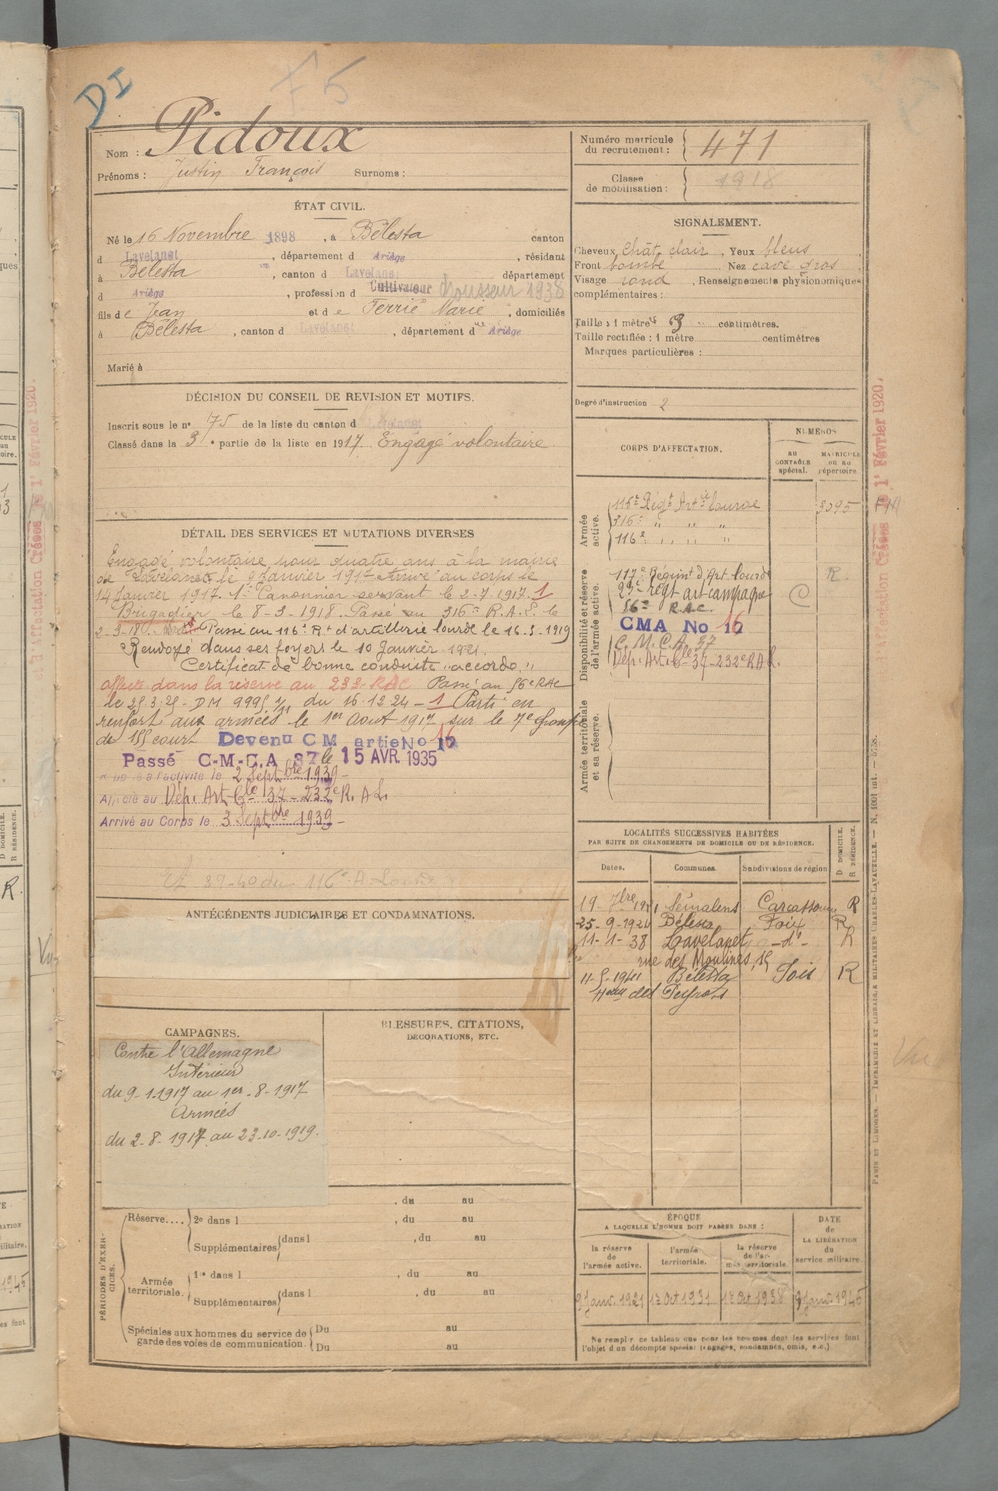 DI
F5
Nom : Pidoux
Prénoms : Justin François Surnoms :
Numéro matricule du recrutement : 471
Classe de mobilisation : 1918
ÉTAT CIVIL.
Né le 16 Novembre 1898, à Bélesta canton
d Lavelanet, département d Ariège, résidant
à Bélesta, canton d Lavelanet département
d Ariège, profession d Cultivateur chausseur 1938
fils de Jean et de Ferrié Marie, domiciliés
à Bélesta, canton d Lavelanet, département d Ariège
Marié à
SIGNALEMENT.
Cheveux chât. clair. Yeux bleus
Front bombé Nez cave gros
Visage rond, Renseignements physionomiques
complémentaires :
Taille : 1 mètre centimètres.
Taille rectifiée : 1 mètre centimètres
Marques particulières :
Degré d'instruction 2
DÉCISION DU CONSEIL DE REVISION ET MOTIFS.
Inscrit sous le n° 75 de la liste du canton d Lavelanet
Classé dans la 3e partie de la liste en 1917. Engagé volontaire
DÉTAIL DES SERVICES ET MUTATIONS DIVERSES
Engagé volontaire pour quatre ans à la mairie
de Lavelanet le 9 Janvier 1917 arrivé au corps le
14 Janvier 1917. 1er Canonnier servant le 2-7-1917. 1
Brigadier le 8-3-1918. Passé au 316e R.A.L. le
Passé au 116e Rt d'artillerie lourde le 16-3-1919
Renvoyé dans ses foyers le 10 Janvier 1921.
Certificat de bonne conduite "accordé"
affecté dans la réserve au 233 RAC Passé au 56e RAC
le 25.3.25 - DM 9995 1/11 du 16-12-24 - 1 Parti en
renfort aux armées le 1er Aout 1917 sur le 7e Group
de 155 court Devenu CM artie No 16
Passé C-M-C.A 37 le 15 AVR. 1935
Rappelé à l'activité le 2 Septbre 1939 -
Affecté au Dép. Art. Cle 137 - 232e R.A.L.
Arrivé au Corps le 3 Septbre 1939 -
39-40 du 116e A Lourde
CORPS D'AFFECTATION.
NUMÉROS
AU CONTRÔLE spécial.
MATRICULE OU AU répertoire.
Armée active.
116e Régt Artie lourde 3095
316e " " "
116e " " "
Disponibilité et réserve de l'armée active.
117e Régimt d'Art. lourde R.
23e regt art campagne C
56e R.A.C.
CMA No 16
C.M.C.A. 37
Dép. Art. Cle 37-232e RAL.
Armée territoriale et sa réserve.
LOCALITÉS SUCCESSIVES HABITÉES
PAR SUITE DE CHANGEMENTS DE DOMICILE OU DE RÉSIDENCE.
Dates. Communes. Subdivisions de région D DOMICILE. R RÉSIDENCE.
19 7bre 1921 Sémalens Carcassonne R
25-9-1924 Bélesta Foix R
11-1-38 Lavelanet -do- R
rue des Moulines, 15
11-5-1941 Bélesta Foix R
ANTÉCÉDENTS JUDICIAIRES ET CONDAMNATIONS.
CAMPAGNES.
Contre l'Allemagne
Intérieur
du 9-1-1917 au 1er-8-1917
Armées
du 2-8-1917 au 23-10-1919.
BLESSURES, CITATIONS,
DÉCORATIONS, ETC.
PÉRIODES D'EXERCICES.
, du au
Réserve.... 2e dans l , du au
Supplémentaires dans l , du au
Armée territoriale. 1re dans l , du au
Supplémentaires dans l , du au
Spéciales aux hommes du service de garde des voies de communication. Du au
Du au
ÉPOQUE
A LAQUELLE L'HOMME DOIT PASSER DANS :
la réserve de l'armée active.
l'armée territoriale.
la réserve de l'armée territoriale
DATE de LA LIBÉRATION du service militaire.
9 Janv. 1921 1er Oct 1931 1er Oct 1938 9 Janv. 1945
Ne remplir ce tableau que pour les hommes dont les services font
l'objet d'un décompte spécial (engagés, condamnés, omis, etc.)
d'Affectation Créées le 1er Février 1920.
PARIS ET LIMOGES. — IMPRIMERIE ET LIBRAIRIE MILITAIRES CHARLES-LAVAUZELLE.
Vu